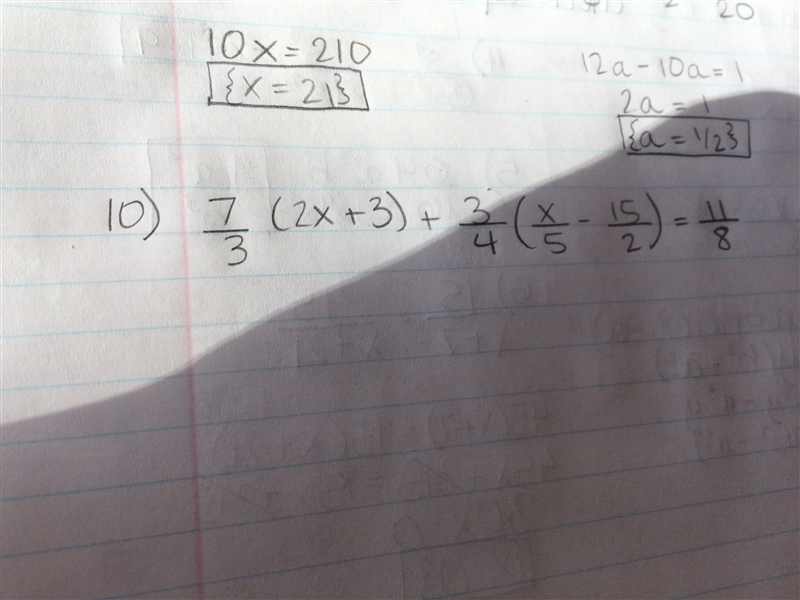 20
10x = 210
{x = 21}
12a - 10a = 1
2a = 1
{a = 1/2}
10) 7/3 (2x + 3) + 3/4 (x/5 - 15/2) = 11/8